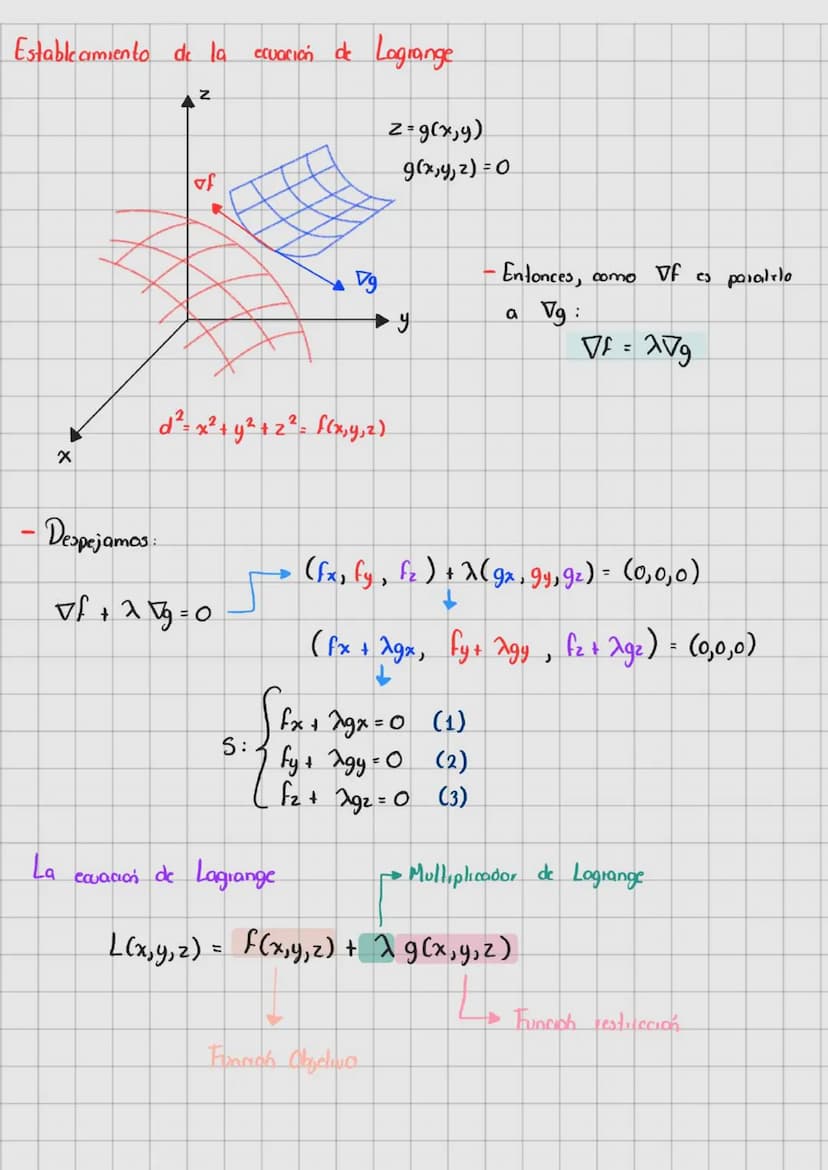 Establecimiento de la ecuación de Lagrange
z
z = g(x,y)
g(x,y,z) = 0
∇f
∇g
y
- Entonces, como ∇f es paralelo
a ∇g :
∇f = λ∇g
d² = x² + y² + z² = f(x,y,z)
x
- Despejamos:
(fx, fy, fz) + λ(gx, gy, gz) = (0,0,0)
∇f + λ ∇g = 0
(fx + λgx, fy + λgy, fz + λgz) = (0,0,0)
S: { fx + λgx = 0 (1)
fy + λgy = 0 (2)
fz + λgz = 0 (3)
La ecuación de Lagrange
Multiplicador de Lagrange
L(x,y,z) = f(x,y,z) + λ g(x,y,z)
Función restricción
Función Objetivo